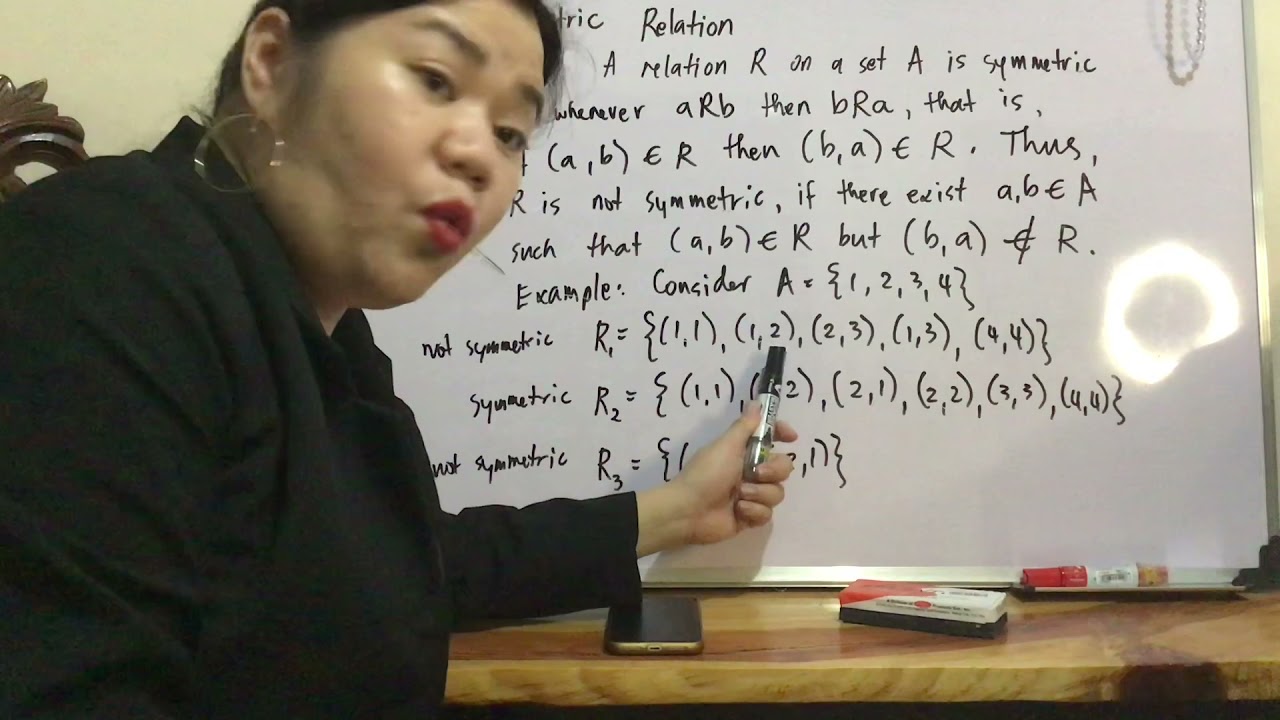 tric Relation
A relation R on a set A is symmetric
whenever aRb then bRa, that is,
(a,b) ∈ R then (b,a) ∈ R. Thus,
R is not symmetric, if there exist a,b ∈ A
such that (a,b) ∈ R but (b,a) ∉ R.
Example: Consider A = {1, 2, 3, 4}
not symmetric R₁ = {(1,1), (1,2), (2,3), (1,3), (4,4)}
symmetric R₂ = {(1,1), ( 2), (2,1), (2,2), (3,3), (4,4)}
not symmetric R₃ = {( ,1)}